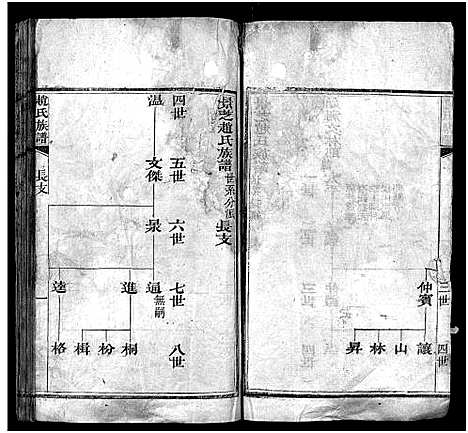 三世
四世
仲賓
讓
山
林
昇
景芝趙氏族譜 世系分圖 長支
四世
五世
六世
七世
八世
溫
文傑
泉
通 無嗣
進
桐
枌
楫
逵
格
趙氏族譜
長支